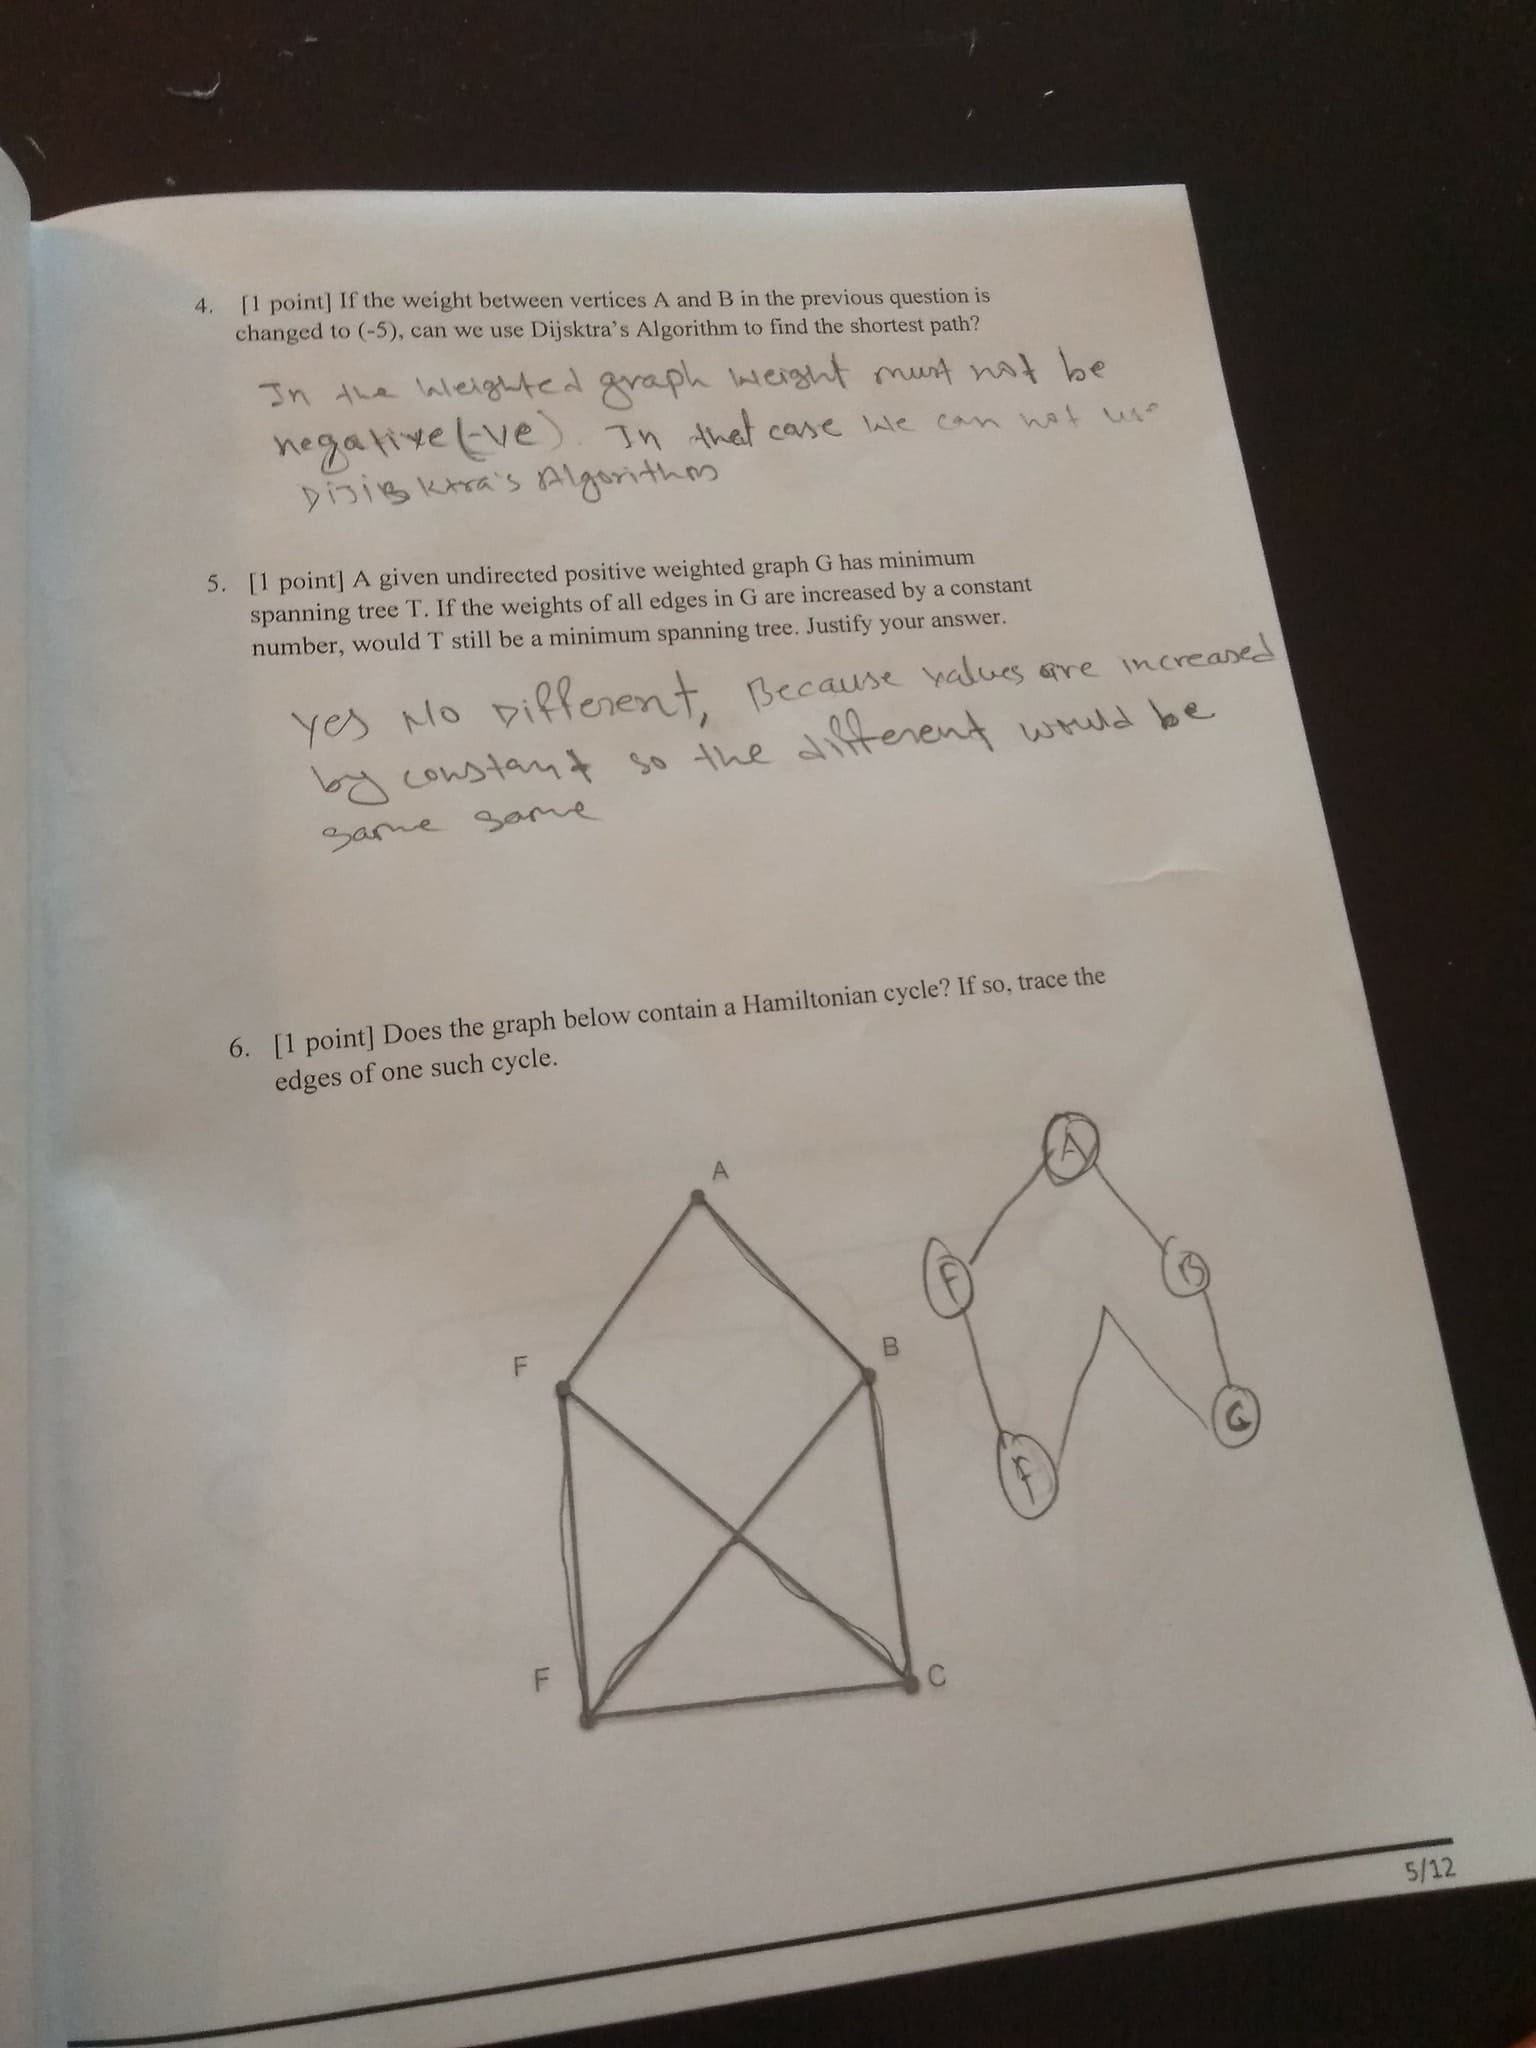 4. [1 point] If the weight between vertices A and B in the previous question is
changed to (-5), can we use Dijsktra's Algorithm to find the shortest path?
In the weighted graph weight must not be
negative (-ve). In that case we can not use
Algorithm
5. [1 point] A given undirected positive weighted graph G has minimum
spanning tree T. If the weights of all edges in G are increased by a constant
number, would T still be a minimum spanning tree. Justify your answer.
yes No Different, Because values are increased
by constant so the different would be
same same
6. [1 point] Does the graph below contain a Hamiltonian cycle? If so, trace the
edges of one such cycle.
A
A
F
B
F
B
G
F
F
C
5/12